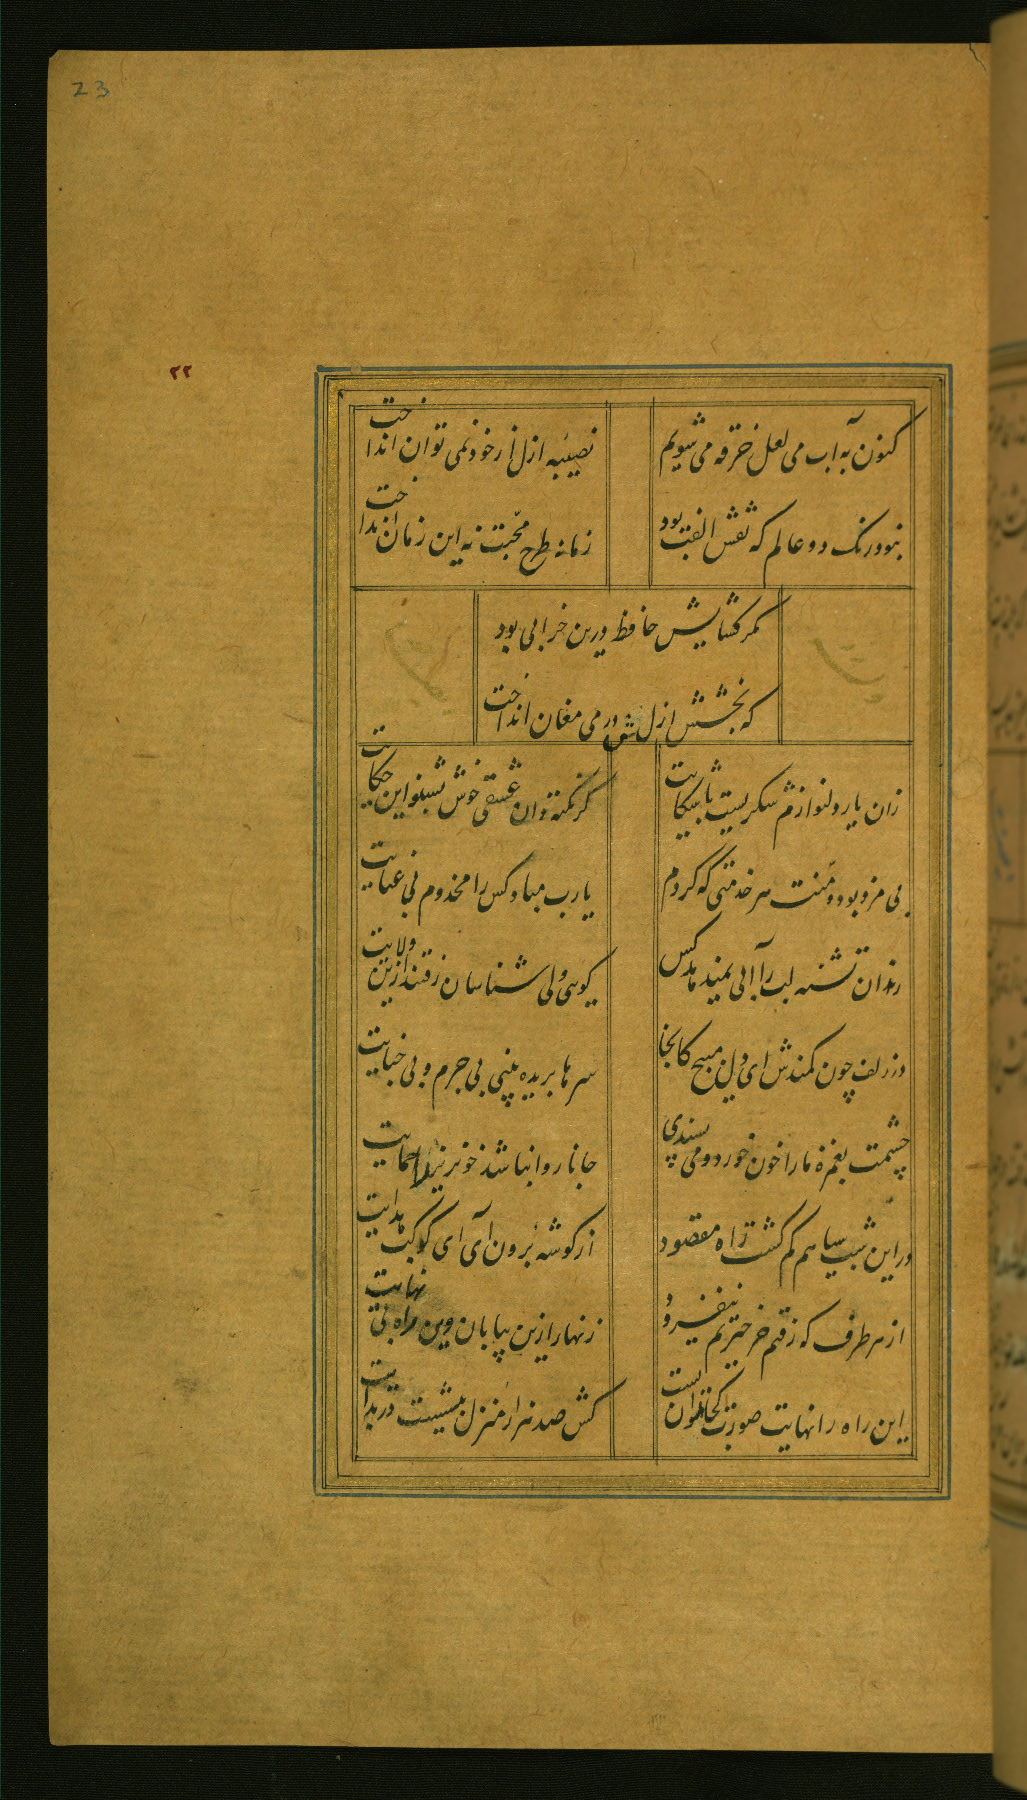 23
۲۲
کنون به آب می لعل خرقه می شویم
نصیبه ازل از خود نمی توان انداخت
نبود رنگ دو عالم که نقش الفت بود
زمانه طرح محبت نه این زمان انداخت
مگر گشایش حافظ درین خرابی بود
که بخشش ازلش در می مغان انداخت
زان یار دلنوازم شکریست با شکایت
گر نکته دان عشقی خوش بشنو این حکایت
بی مزد بود و منت هر خدمتی که کردم
یارب مباد کس را مخدوم بی عنایت
رندان تشنه لب را آبی نمیدهد کس
گوئی ولی شناسان رفتند ازین ولایت
در زلف چون کمندش ای دل مپیچ کانجا
سرها بریده بینی بی جرم و بی جنایت
چشمت بغمزه ما را خون خورد و می پسندی
جانا روا نباشد خونریز را حمایت
در این شب سیاهم گم گشت راه مقصود
از گوشه برون آی ای کوکب هدایت
از هر طرف که رفتم جز حیرتم نیفزود
زنهار ازین بیابان وین راه بی نهایت
این راه را نهایت صورت کجا توان بست
کش صد هزار منزل بیشست در بدایت